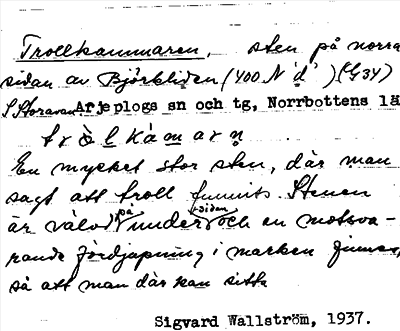 Trollkammaren, sten på norra
sidan av Björkliden (400 N "d") (G34)
S Storavan Arjeplogs sn och tg, Norrbottens lä
tròlkàmarn
En mycket stor sten, där man
sagt att troll funnits. Stenen
är välvd på undersidan och en motsva-
rande fördjupning i marken finnes,
så att man där kan sitta
Sigvard Wallström, 1937.